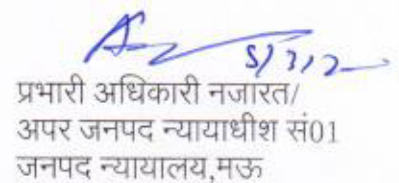 5/3/2
प्रभारी अधिकारी नजारत/
अपर जनपद न्यायाधीश सं01
जनपद न्यायालय,मऊ